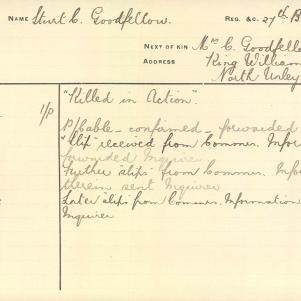 NAME Sturt C. Goodfellow.
REG. &C. 27th B
NEXT OF KIN Mrs C. Goodfell
ADDRESS King William
North Unley
1/P
"Killed in Action".
P/Cable - confirmed - forwarded
"Slip" received from Commer. Infor
forwarded Inquirer
Further "slips" from Commer. Info
therein sent Inquirer
Later slips from Commers. Information
Inquirer